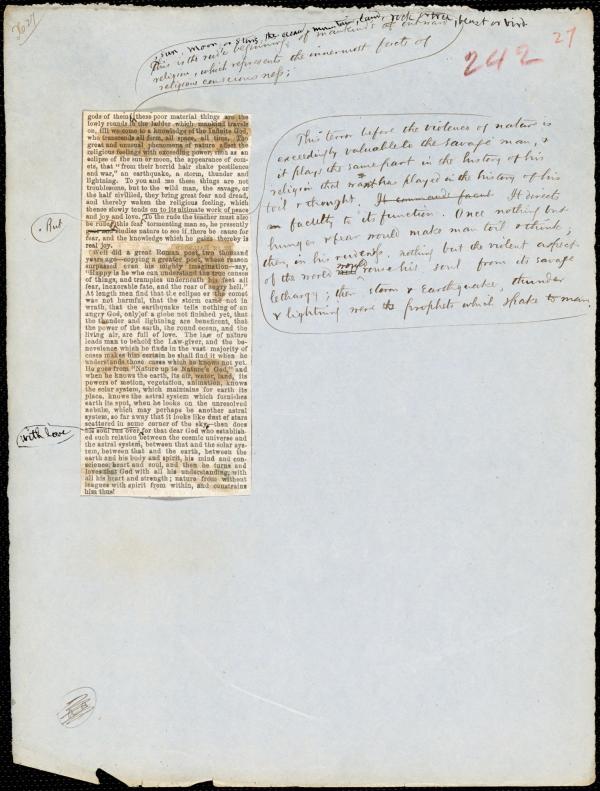 27
242
, sun, moon, or stars, the ocean, mountain, land, rock or tree, beast or bird
This is the rude beginnings of mankind's outward
religion, which represents the innermost facts of
religious consciousness;
gods of them; these poor material things are the
lowly rounds in the ladder which mankind travels
on, till we come to a knowledge of the Infinite God,
who transcends all form, all space, all time. The
great and unusual phenomena of nature affect the
religious feelings with exceeding power, such as an
eclipse of the sun or moon, the appearance of com-
ets, that "from their horrid hair shake pestilence
and war," an earthquake, a storm, thunder and
lightning. To you and me these things are not
troublesome, but to the wild man, the savage, or
the half civilized, they bring great fear and dread,
and thereby waken the religious feeling, which
thence slowly tends on to its ultimate work of peace
and joy and love. To the rude the teacher must also
be rude; this fear tormenting man so, he presently
studies nature to see if there be cause for
fear, and the knowledge which he gains thereby is
real joy.
Well did a great Roman poet, two thousand
years ago—copying a greater poet, whose reason
surpassed even his mighty imagination—say,
"Happy is he who can understand the true causes
of things, and tramples underneath his feet all
fear, inexorable fate, and the roar of angry hell."
At length men find that the eclipse or the comet
was not harmful, that the storm came not in
wrath, that the earthquake tells nothing of an
angry God, only of a globe not finished yet, that
the thunder and lightning are beneficent, that
the power of the earth, the round ocean, and the
living air, are full of love. The law of nature
leads man to behold the Law-giver, and the be-
nevolence which he finds in the vast majority of
cases makes him certain he shall find it when he
understands those cases which he knows not yet.
He goes from "Nature up to Nature's God," and
when he knows the earth, its air, water, land, its
powers of motion, vegetation, animation, knows
the solar system, which maintains for earth its
place, knows the astral system which furnishes
earth its spot, when he looks on the unresolved
nebulæ, which may perhaps be another astral
system, so far away that it looks like dust of stars
scattered in some corner of the sky—then does
his soul run over for that dear God who establish-
ed such relation between the cosmic universe and
the astral system, between that and the solar sys-
tem, between that and the earth, between the
earth and his body and spirit, his mind and con-
science, heart and soul, and then he turns and
loves that God with all his understanding, with
all his heart and strength; nature from without
leagues with spirit from within, and constrains
him thus!
. But
with love
This terror before the violence of nature is
exceedingly valuable to the savage man, &
it plays the same part in the history of his
religion that want has played in the history of his
toil & thought. It It directs
faculty to its function. Once nothing but
hunger & fear would make man toil & think;
then, in his rudeness, nothing but the violent aspect
of the world could rouse his soul from its savage
lethargy; then storm & earthquake, thunder
& lightning were the prophets which spake to man,